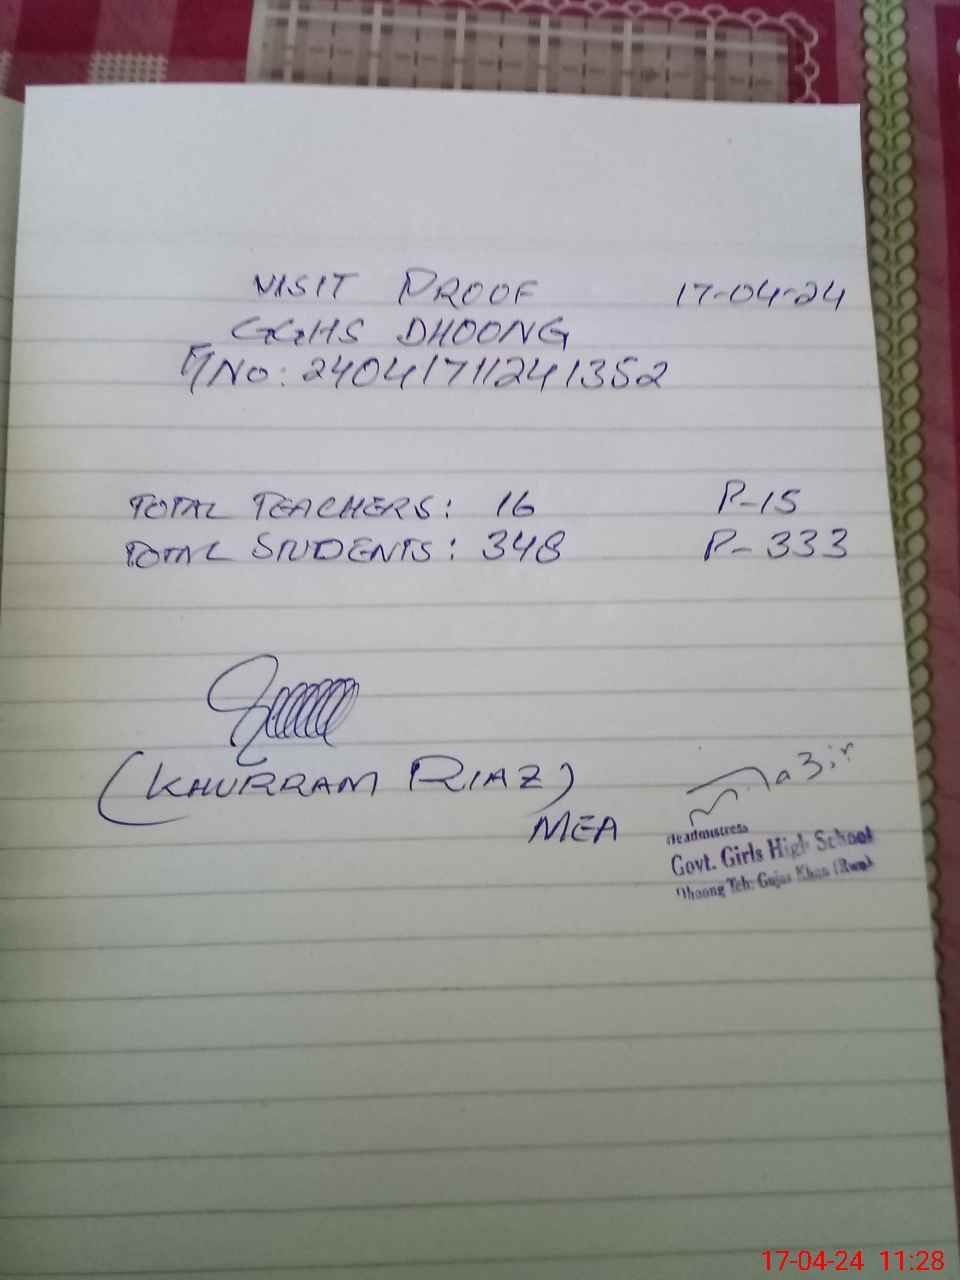 VISIT PROOF 17-04-24
GGHS DHOONG
F/No: 240417111241352
TOTAL TEACHERS: 16 P-15
TOTAL STUDENTS: 348 P-333
(KHURRAM RIAZ)
MEA
Headmistress
Govt. Girls High School
Dhoong Teh: Gujar Khan (Rwp)
17-04-24 11:28